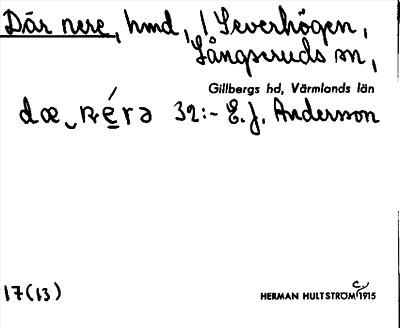 Där nere, hmd, ! Severhögen,
Långseruds sn,
Gillbergs hd, Värmlands län
dœ‿néra 32:- E. J. Andersson
17(13) HERMAN HULTSTRÖM 1915